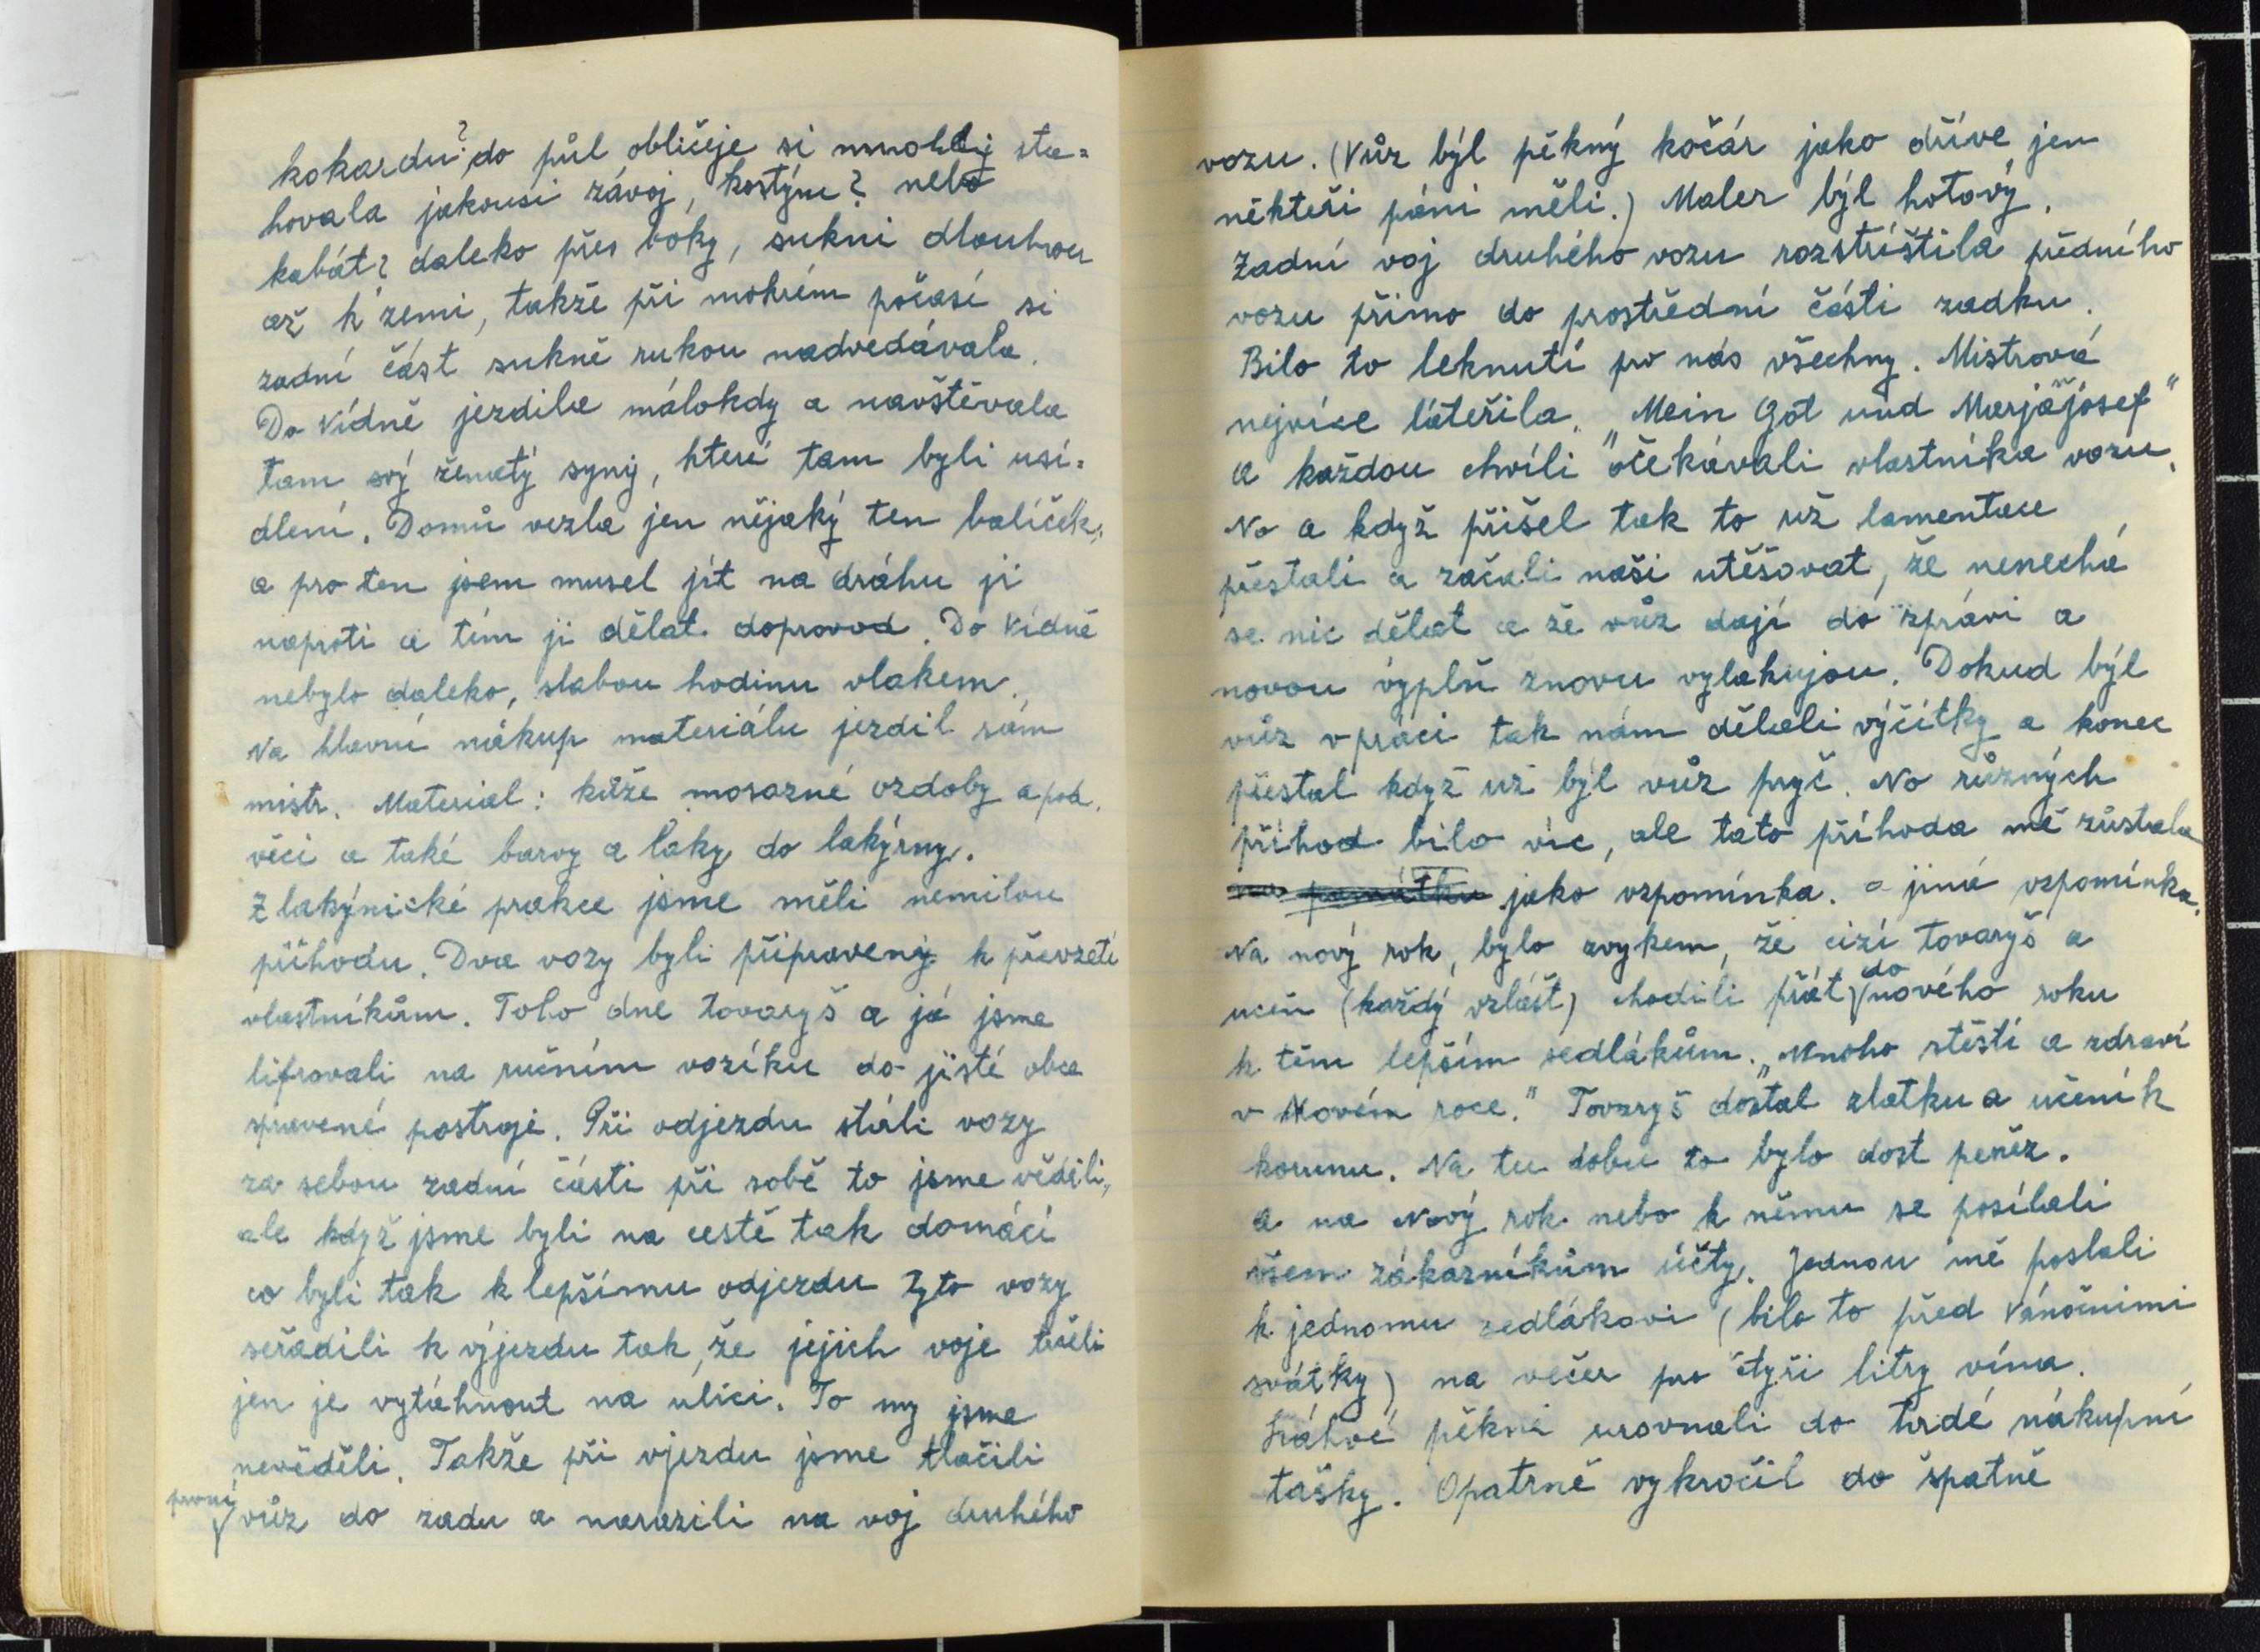 kokardu? do půl obličeje si mnohdy sta=
hovala jakousi závoj, kostým? nebo
kabát? daleko přes boky, sukni dlouhou
až k zemi, takže při mokrém počasí si
zadní část sukně rukou nadvedávala.
Do Vídně jezdila málokdy a navštěvala
tam svý ženatý syny, které tam byli usí=
dlení. Domů vezla jen nějaký ten balíček,
a pro ten jsem musel jít na dráhu ji
naproti a tím ji dělat doprovod. Do Vídně
nebylo daleko, slabou hodinu vlakem.
Na hlavní nákup materiálu jezdil sám
mistr. Material: kůže mosazné ozdoby a pod.
věci a také barvy a laky do lakýrny.
Z lakýnické prakce jsme měli nemilou
příhodu. Dva vozy byli připraveny k převzetí
vlastníkům. Toho dne tovaryš a já jsme
lifrovali na ručním vozíku do jisté obce
spravené postroje. Při odjezdu stáli vozy
za sebou zadní části při sobě to jsme věděli,
ale když jsme byli na cestě tak domácí
co byli tak k lepšímu odjezdu tyto vozy
seřadili k výjezdu tak, že jejich voje trčeli
jen je vytáhnout na ulici. To my jsme
nevěděli. Takže při vjezdu jsme tlačili
první vůz do zadu a narazili na voj druhého
vozu. (Vůz býl pěkný kočár jako dříve jen
někteři páni měli.) Maler býl hotový.
Zadní voj druhého vozu rozstříštila předního
vozu přimo do prostřední části zadku.
Bilo to leknutí pro nás všechny. Mistrová
nejvíce láteřila. "Mein Got und Marjäjósef"
a každou chvíli očekávali vlastníka vozu.
No a když přišel tak to už lamentace
přestali a začali naši utěšovat, že nenechá
se nic dělat a že vůz dají do zprávi a
novou výplň znovu vylakujou. Dokud býl
vůz v práci tak nám dělali výčitky a konec
přestal když už býl vůz pryč. No různých
příhod bilo víc, ale tato příhoda mě zůstala
na památku jako vzpomínka. a jiná vzpomínka.
Na nový rok, bylo zvykem, že cizí tovaryš a
učeň (každý vzlášť) chodili přát do nového roku
k těm lepším sedlákům. "Mnoho stěstí a zdraví
v Novém roce." Tovaryš dostal zlatku a učeník
korunu. Na tu dobu to bylo dost peněz.
a na Nový rok nebo k němu se posílali
všem zákazníkům účty. Jednou mě poslali
k jednomu sedlákovi (bilo to před Vánočnimi
svátky) na večer pro čtyři litry vína.
Láhvé pěkně urovnali do tvrdé nákupní
tašky. Opatrně vykročil do špatně